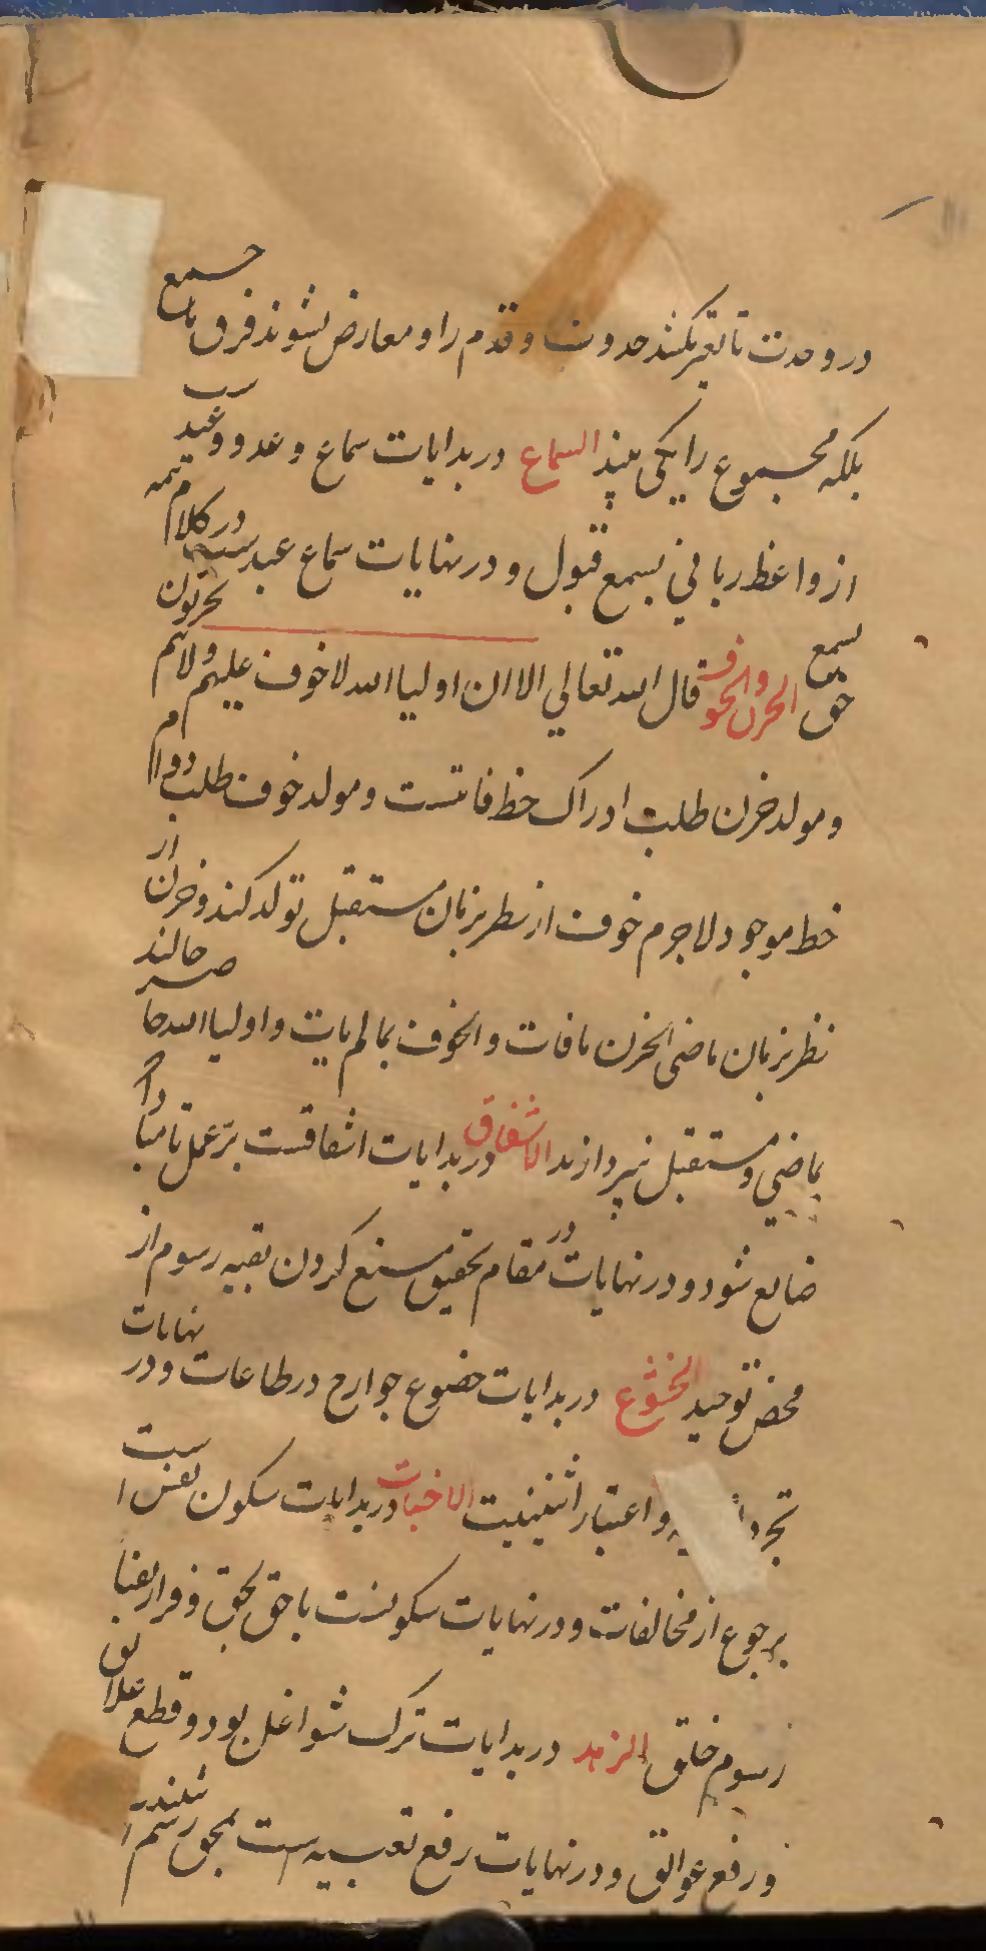 در وحدت تا تغیر نکنند حدوث و قدم را و معارض نشوند فرق با جمع
بلکه مجموع را یکی بیند السماع در بدایات سماع وعد و وعید
از واعظ ربانی بسمع قبول و در نهایات سماع عبد در کلام
بسمع حق الحزن والخوف قال الله تعالی الا ان اولیا الله لا خوف علیهم ولا هم یحزنون
و مولد حزن طلب ادراک حظ فاتست و مولد خوف طلب دوام
حظ موجود لاجرم خوف از نظر بزمان مستقبل تولد کند و حزن از
نظر بزمان ماضی الحزن مافات والخوف بمالم یات و اولیا الله حاضر حالند
بماضی و مستقبل نپردازند الاشفاق در بدایات اشفاقست بر عمل تا مبادا
ضایع شود و در نهایات در مقام تحقیق منع کردن بقیه رسوم از
محض توحید الخشوع در بدایات خضوع جوارح در طاعات و در نهایات
و اعتبار اثنینیت الاخبات در بدایات سکون نفس است
برجوع از مخالفات و در نهایات سکونست با حق بحق و فرار
رسوم خلق الزهد در بدایات ترک شواغل بود و قطع علائق
و رفع عوائق و در نهایات رفع است بحق رسم